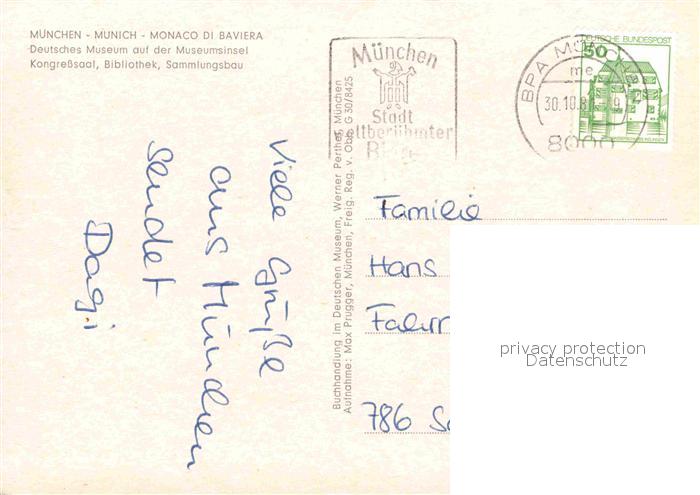 MÜNCHEN - MUNICH - MONACO DI BAVIERA
Deutsches Museum auf der Museumsinsel
Kongreßsaal, Bibliothek, Sammlungsbau
Viele Grüße
aus München
sendet
Dagi
Buchhandlung im Deutschen Museum, Werner Perthel, München
Aufnahme: Max Prugger, München, Freig. Reg. v. Obb. G 30/8425
München
Stadt
weltberühmter
BPA MÜNCHEN
me
30.10.8
8000
DEUTSCHE BUNDESPOST
50
Familie
Hans
Fahrr
786 Sc
privacy protection
Datenschutz